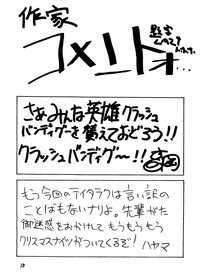 作家
コメント…
さぁみんな英雄クラッシュ
バンディグーを買えておどろう!!
クラッシュバンディグ〜!!
もう今回のテイタラクは言い訳の
ことばもないナリよ。先輩がた
御迷惑をおかけしてもうもうもう
クリスマスナイツがついてくるぞ! ハヤマ